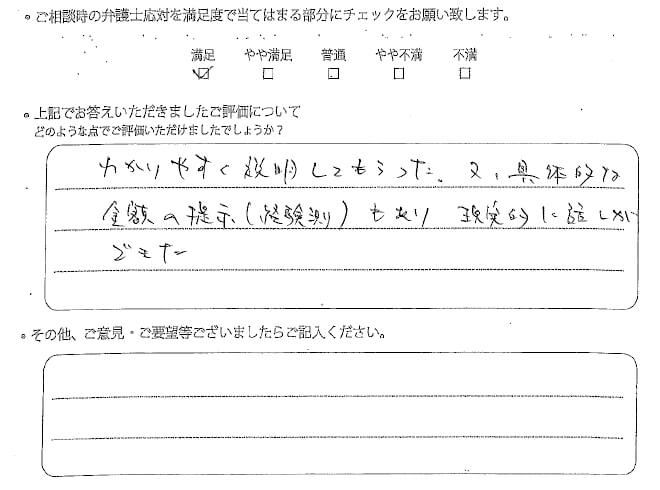 ご相談時の弁護士応対を満足度で当てはまる部分にチェックをお願い致します。
満足 やや満足 普通 やや不満 不満
上記でお答えいただきましたご評価について
どのような点でご評価いただけましたでしょうか？
わかりやすく説明してもらった。又、具体的な
金額の提示(経験測)もあり 現実的に話しが
できた
その他、ご意見・ご要望等ございましたらご記入ください。